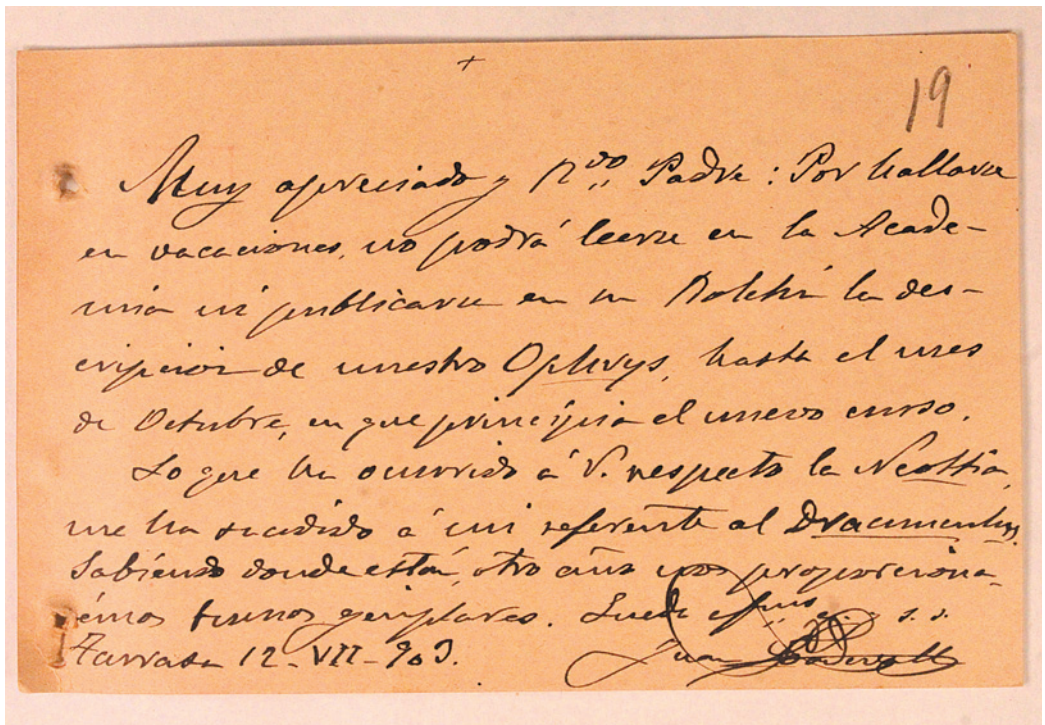 +
19
Muy apreciado y Rdo. Padre: Por hallarse
en vacaciones, no podrá leerse en la Acade-
mia ni publicarse en su Boletín la des-
cripcion de nuestro Ophrys, hasta el mes
de Octubre, en que principia el nuevo curso.
Lo que ha ocurrido á V. respecto la Neottia,
me ha sucedido á mi referente al Dracunculus.
Sabiendo donde están, otro año nos proporciona-
rémos buenos ejemplares. Suyo
s. s.
Tarrasa 12-VII-903.
Juan Cadevall